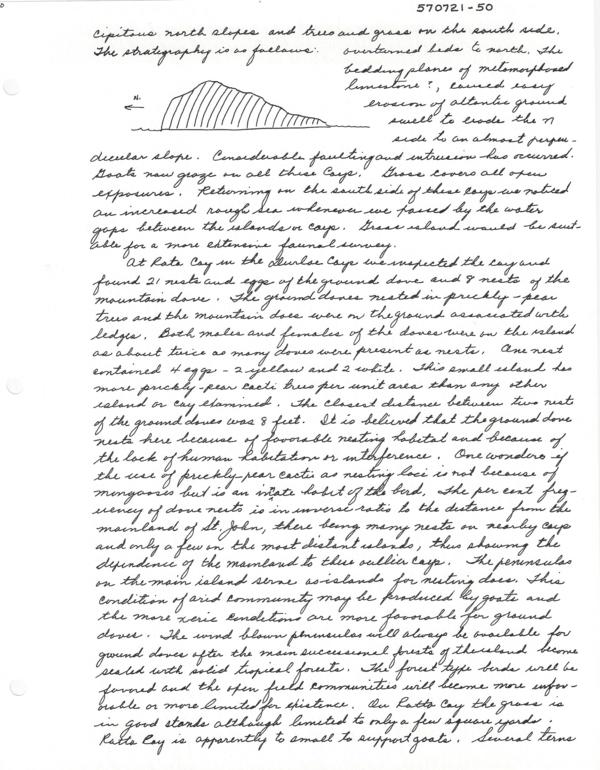 570721-50
cipitous north slopes and trees and grass on the south side.
The stratography is as follows: overturned beds to north. The
bedding planes of metamorphosed
limestone?, caused easy
N. erosion of atlantic ground
swell to erode the N
side to an almost perpen-
dicular slope. Considerable faulting and intrusion has occurred.
Goats now graze on all these Cays. Grass covers all open
exposures. Returning on the south side of these cays we noticed
an increased rough sea whenever we passed by the water
gaps between the islands or cays. Grass island would be suit-
able for a more extensive faunal survey.
At Rata Cay in the Durloe Cays we inspected the cay and
found 21 nests and eggs of the ground dove and 8 nests of the
mountain dove. The ground doves nested in prickly-pear
trees and the mountain does were on the ground associated with
ledges. Both males and females of the doves were on the island
as about twice as many doves were present as nests. One nest
contained 4 eggs - 2 yellow and 2 white. This small island has
more prickly-pear cacti trees per unit area than any other
island or cay examined. The closest distance between two nests
of the ground doves was 8 feet. It is believed that the ground dove
nests here because of favorable nesting habitat and because of
the lack of human habitation or interference. One wonders if
the use of prickly-pear cactus as nesting loci is not because of
mongooses but is an innate habit of the bird. The per cent freq-
uency of dove nests is in inverse ratio to the distance from the
mainland of St. John, there being many nests on nearby cays
and only a few on the most distant islands, thus showing the
dependence of the mainland to these outlier cays. The peninsulas
on the main island serve as islands for nesting does. This
condition of arid community may be produced by goats and
the more xeric conditions are more favorable for ground
doves. The wind blown peninsulas will always be available for
ground doves after the main successional forests of the island become
sealed with solid tropical forests. The forest type birds will be
favored and the open field communities will become more unfav-
orable or more limited for existence. On Ratta Cay the grass is
in good stands although limited to only a few square yards.
Ratta Cay is apparently to small to support goats. Several terns